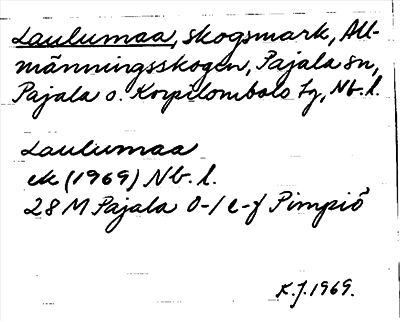 Laulumaa, skogsmark, All-
männingsskogen, Pajala sn,
Pajala o. Korpilombolo tg, Nb. l.
Laulumaa
ek (1969) Nb. l.
28 M Pajala 0-1 e-f Pimpiö
K.J. 1969.